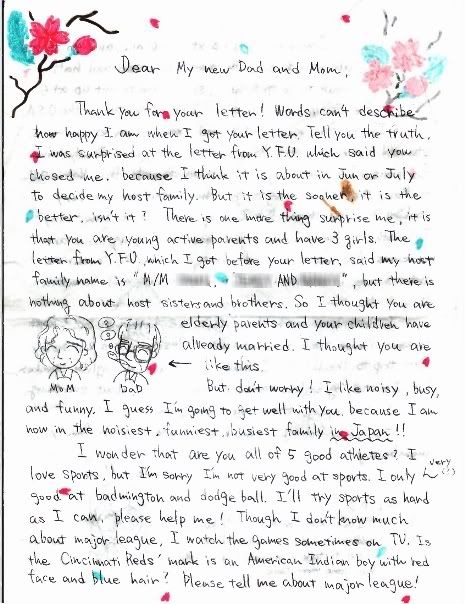 Dear My new Dad and Mom,
Thank you for your letter! Words can't describe
how happy I am when I got your letter. Tell you the truth,
I was surprised at the letter from Y.F.U. which said you
chosed me, because I think it is about in Jun or July
to decide my host family. But it is the sooner, it is the
better, isn't it? There is one more thing surprise me, it is
that you are young active parents and have 3 girls. The
letter from Y.F.U. which I got before your letter, said my host
family name is "M/M AND ", but there is
nothing about host sisters and brothers. So I thought you are
elderly parents and your children have
already married. I thought you are
← like this.
MoM DaD
But don't worry! I like noisy, busy,
and funny. I guess I'm going to get well with you. because I am
now in the noisiest, funniest, busiest family in Japan!!
I wonder that are you all of 5 good athletes? I
love sports, but I'm sorry I'm not very good at sports. I only
very
good at badmington and dodge ball. I'll try sports as hard
as I can, please help me! Though I don't know much
about major league, I watch the games sometimes on TV. Is
the Cincinnati Reds' mark is an American Indian boy with red
face and blue hair? Please tell me about major league!